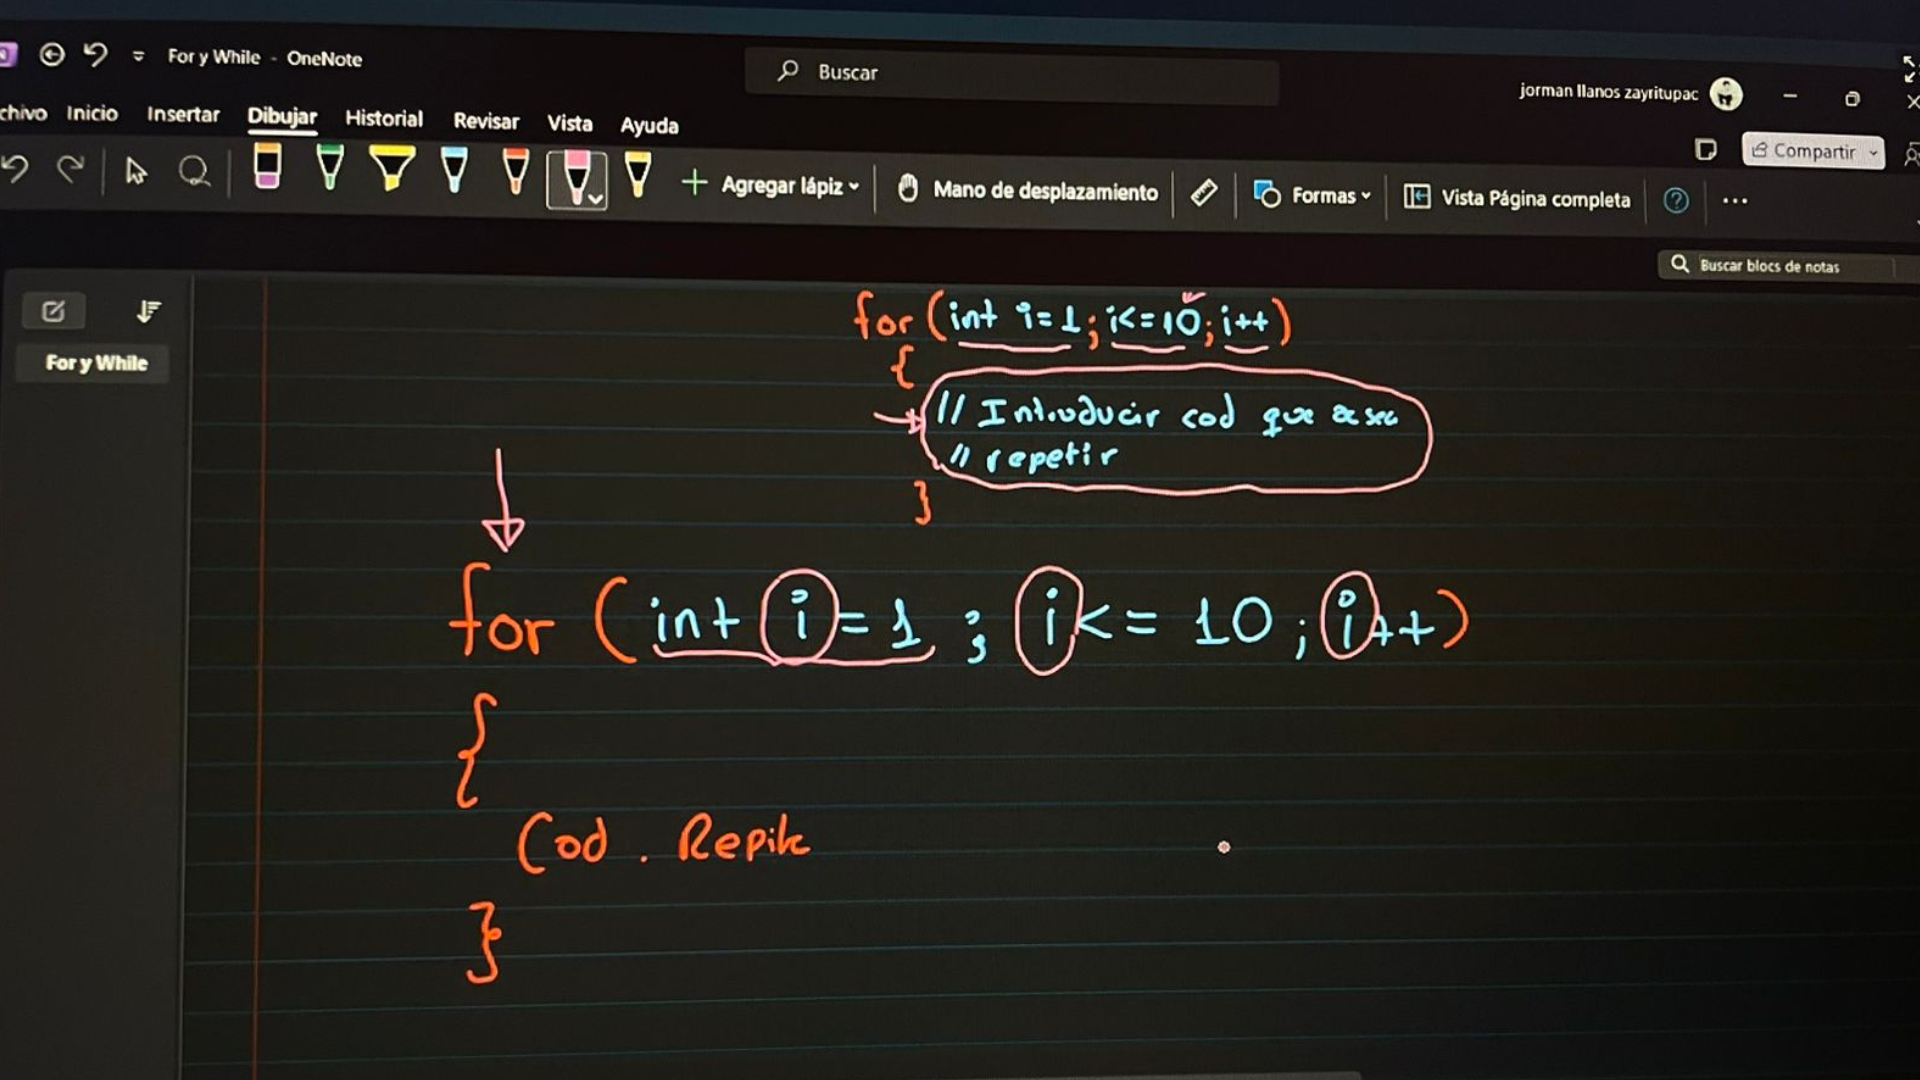 For y While - OneNote
Buscar
jorman llanos zayritupac
chivo Inicio Insertar Dibujar Historial Revisar Vista Ayuda
Compartir
Agregar lápiz
Mano de desplazamiento
Formas
Vista Página completa
Buscar blocs de notas
For y While
for (int i=1; i<=10; i++)
{
// Introducir cod que
// repetir
}
for (int i=1; i<= 10; i++)
{
Cod.
}